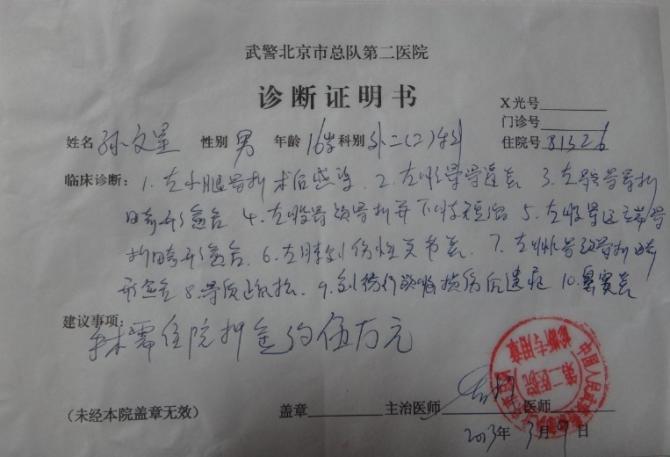 武警北京市总队第二医院
诊断证明书
X光号
门诊号
姓名 孙文星 性别 男 年龄 16岁 科别 外二(2)科 住院号 81326
临床诊断：1.左小腿骨折术后感染 2.左胫骨骨髓炎 3.左骨折
畸形愈合 4.左股骨颈骨折并下肢短缩 5.左股骨远端骨
折畸形愈合 6.左创伤性关节炎 7.左骨颈骨折畸
形愈合 8.骨质疏松 9.创伤损伤后遗症 10.鼻窦炎
建议事项：
需住院押金约伍万元
第二医院
诊断专用章
(未经本院盖章无效) 盖章 主治医师 医师
2013年3月7日